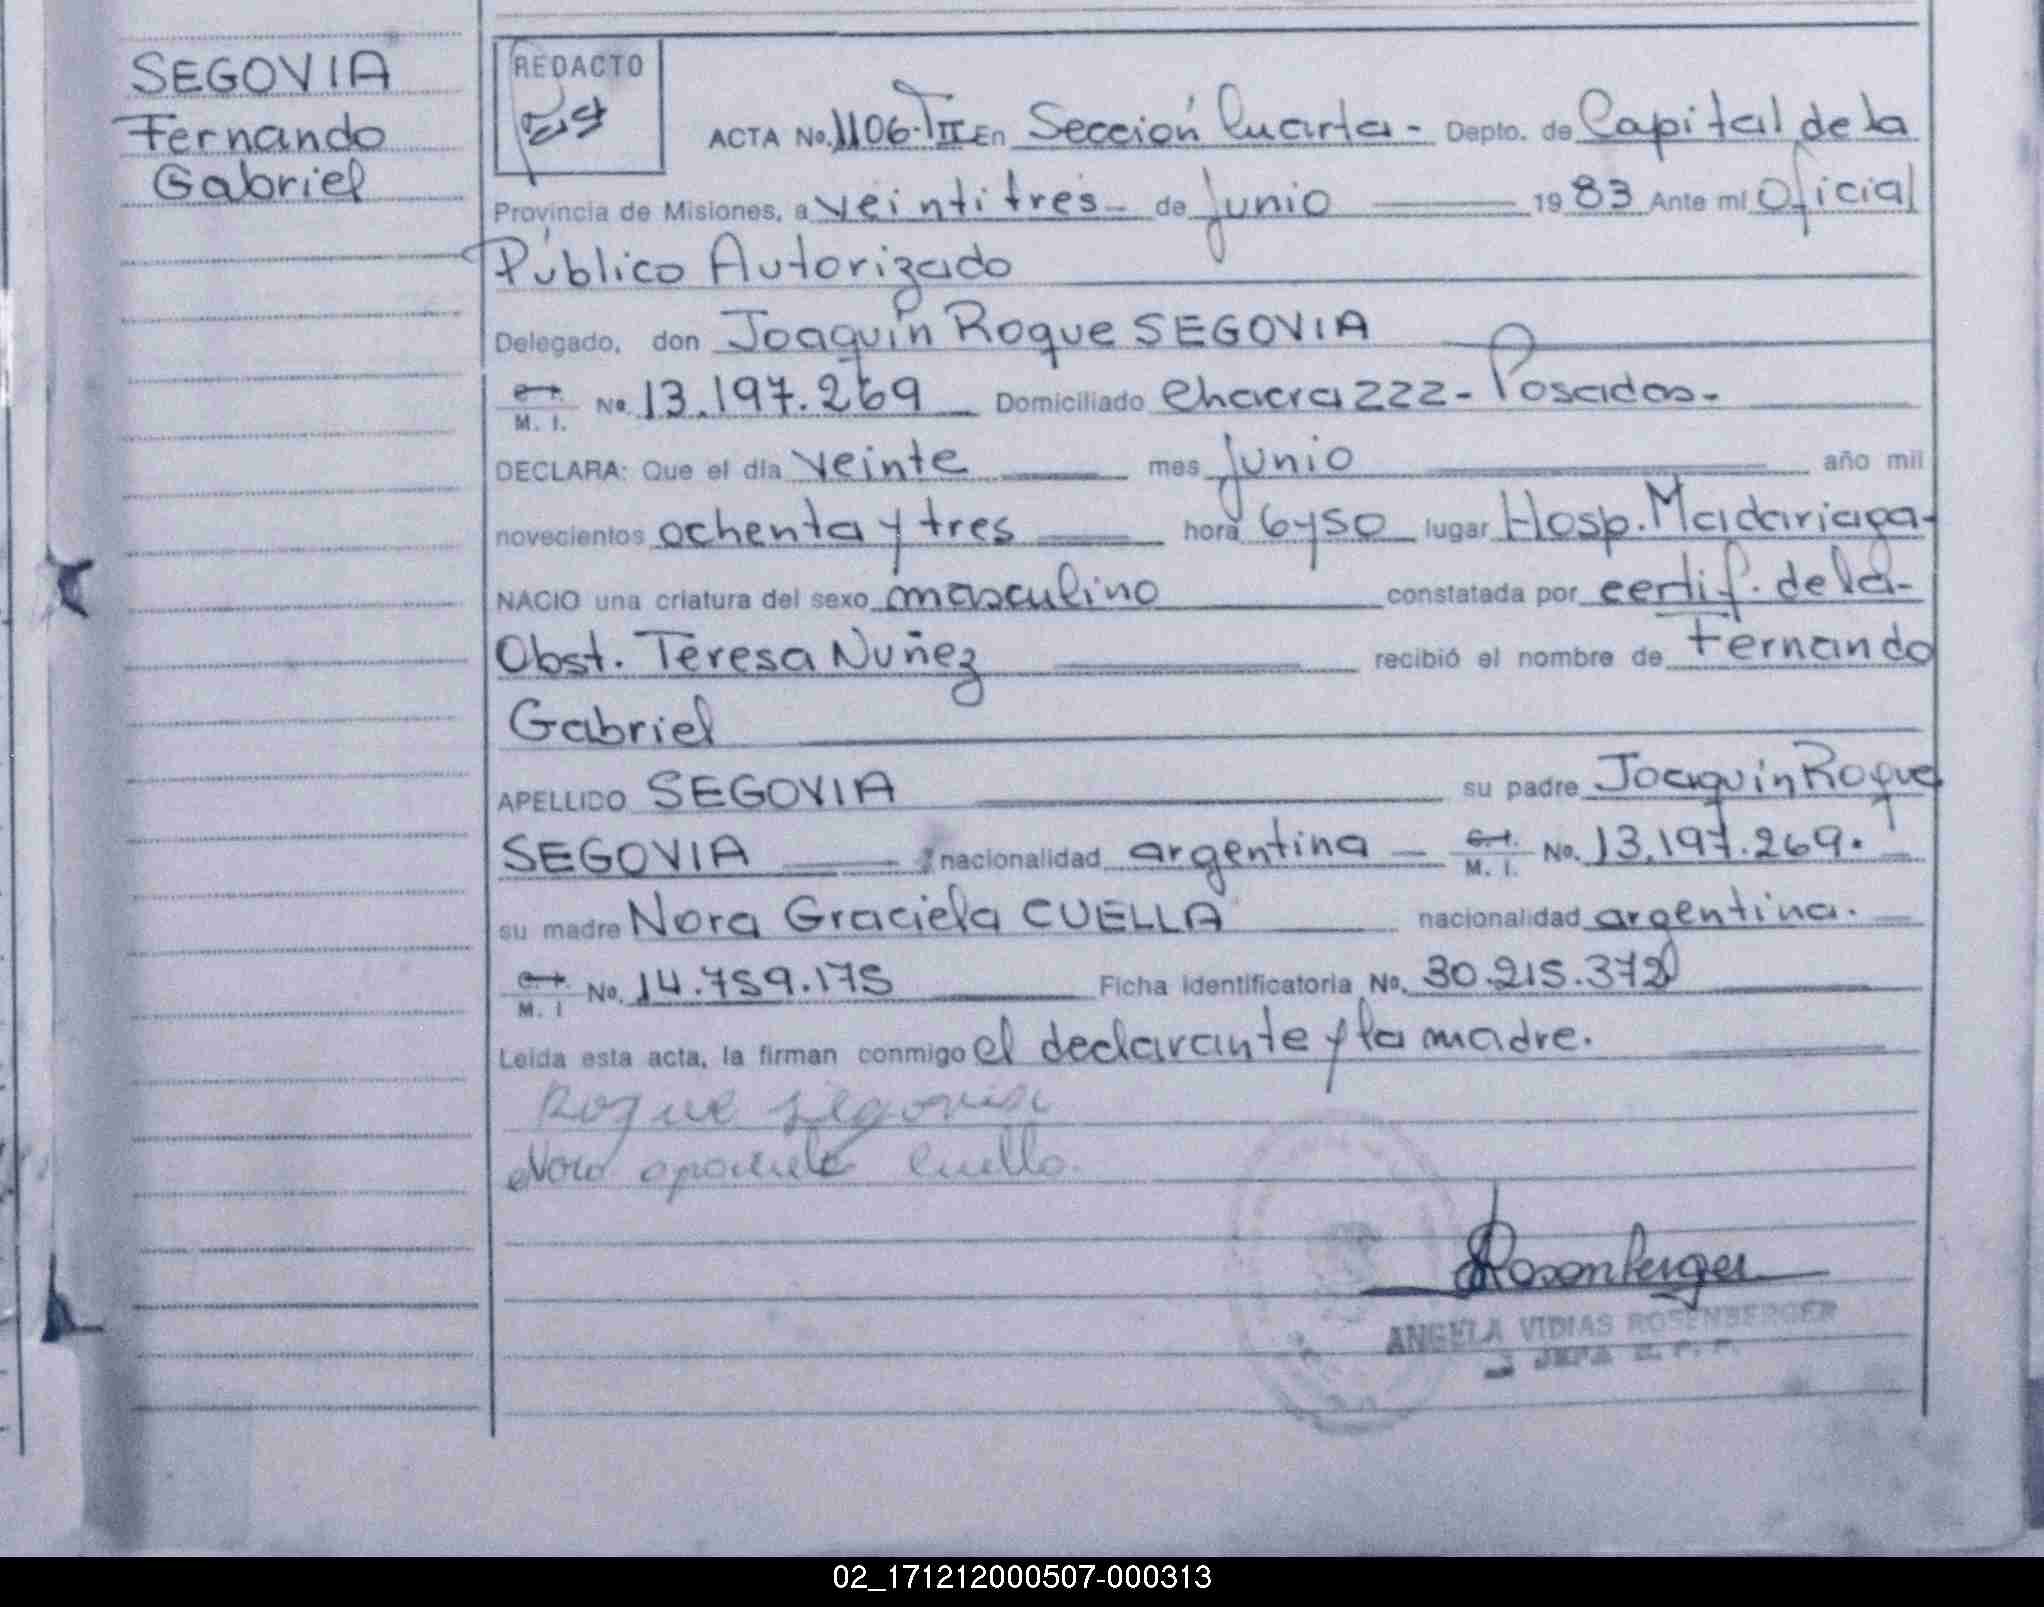 SEGOVIA
Fernando
Gabriel
REDACTO
ACTA No. 1106-TII En Sección Cuarta - Depto. de Capital de la
Provincia de Misiones, a veintitres - de Junio 19 83 Ante mi Oficial
Público Autorizado
Delegado, don Joaquín Roque SEGOVIA
M. I. No 13.197.269 Domiciliado Chacra 222 - Posadas -
DECLARA: Que el día veinte mes Junio año mil
novecientos ochenta y tres hora 6 y 50 lugar Hosp. Madariaga -
NACIO una criatura del sexo masculino constatada por certif. de la -
Obst. Teresa Nuñez recibió el nombre de Fernando
Gabriel
APELLIDO SEGOVIA su padre Joaquín Roque
SEGOVIA nacionalidad argentina - M. I. No. 13.197.269.
su madre Nora Graciela CUELLA nacionalidad argentina.
M. I No. 14.759.175 Ficha identificatoria No. 30.215.372
Leida esta acta, la firman conmigo el declarante y la madre.
Roque Segovia
Nora Cuella
Rosenberger
ANGELA VIDIAS ROSENBERGER
JEFA
02_171212000507-000313